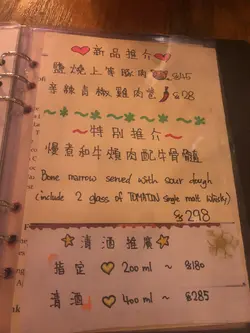 新品推介
鹽燒上等豚肉 $45
辛辣青椒雞肉醬 $28
特別推介
慢煮和牛頰肉配牛骨髓
Bone marrow served with sour dough
(include 2 glass of TOMATON single malt whisky)
$298
清酒推廣
指定 200 ml ~ $180
清酒 400 ml ~ $285